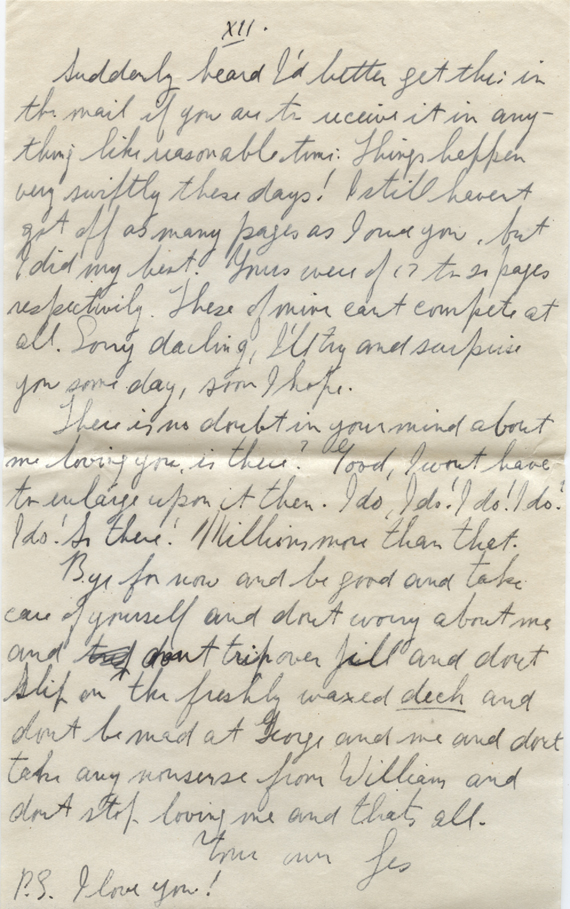 XII.
Suddenly heard I'd better get this in
the mail if you are to receive it in any-
thing like reasonable time. Things happen
very swiftly these days! I still havent
got off as many pages as I owe you, but
I did my best. Yours were of 17 to 21 pages
respectively. These of mine cant compete at
all. Sorry darling, I'll try and surprise
you some day, soon I hope.
There is no doubt in your mind about
me loving you, is there? Good, I wont have
to enlarge upon it then. I do, I do! I do! I do!
I do! So there! Millions more than that.
Bye for now and be good and take
care of yourself and dont worry about me
and dont trip over Jill and dont
slip on the freshly waxed deck and
dont be mad at George and me and dont
take any nonsense from William and
dont stop loving me and thats all.
Your own Les
P.S. I love you!